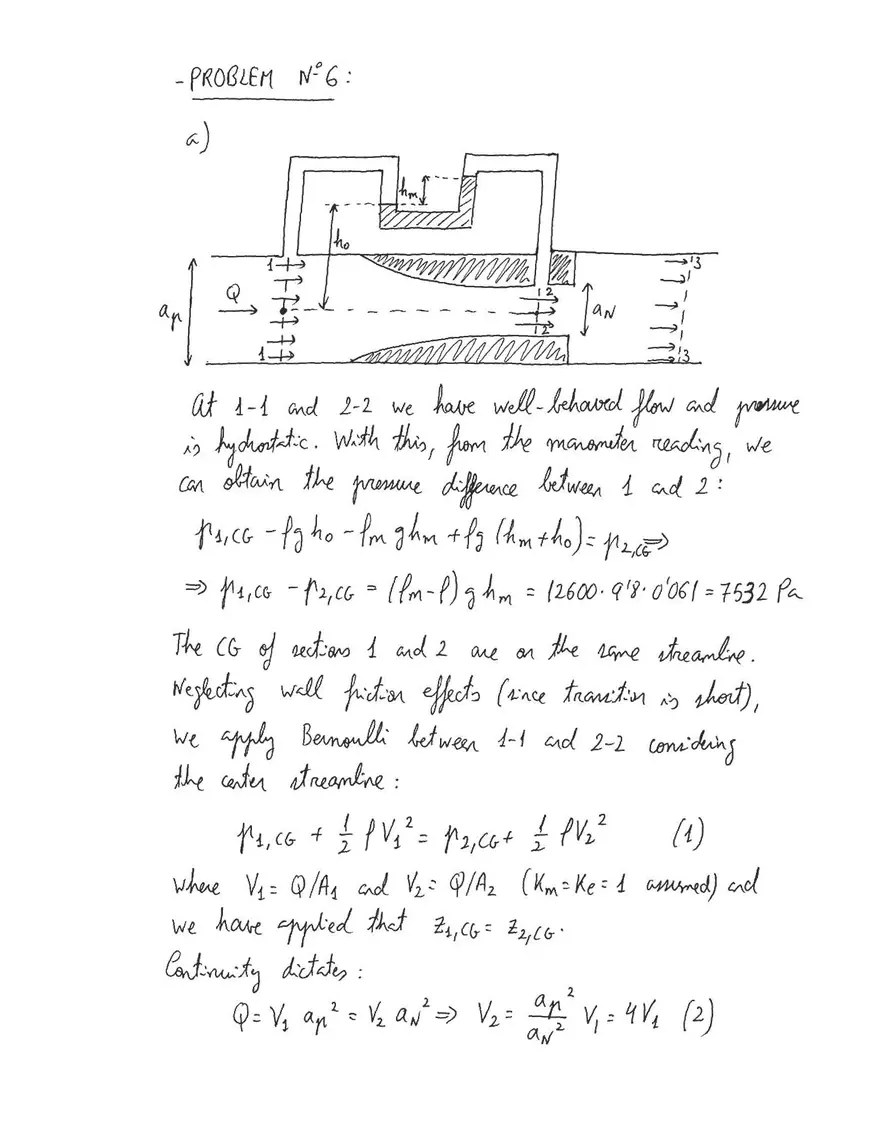 - PROBLEM Nº6:
a)
hm
ho
1 3
Q ap 2 aN
2
1 3
At 1-1 and 2-2 we have well-behaved flow and pressure
is hydrostatic. With this, from the manometer reading, we
can obtain the pressure difference between 1 and 2:
p1,CG - ρgho - ρm ghm + ρg (hm+ho) = p2,CG ⇒
⇒ p1,CG - p2,CG = (ρm-ρ) g hm = 12600·9'8·0'061 = 7532 Pa
The CG of sections 1 and 2 are on the same streamline.
Neglecting wall friction effects (since transition is short),
we apply Bernoulli between 1-1 and 2-2 considering
the center streamline:
p1,CG + 1/2 ρV1² = p2,CG + 1/2 ρV2² (1)
where V1 = Q/A1 and V2 = Q/A2 (Km=Ke=1 assumed) and
we have applied that z1,CG = z2,CG.
Continuity dictates:
Q = V1 ap² = V2 aN² ⇒ V2 = ap²/aN² V1 = 4V1 (2)